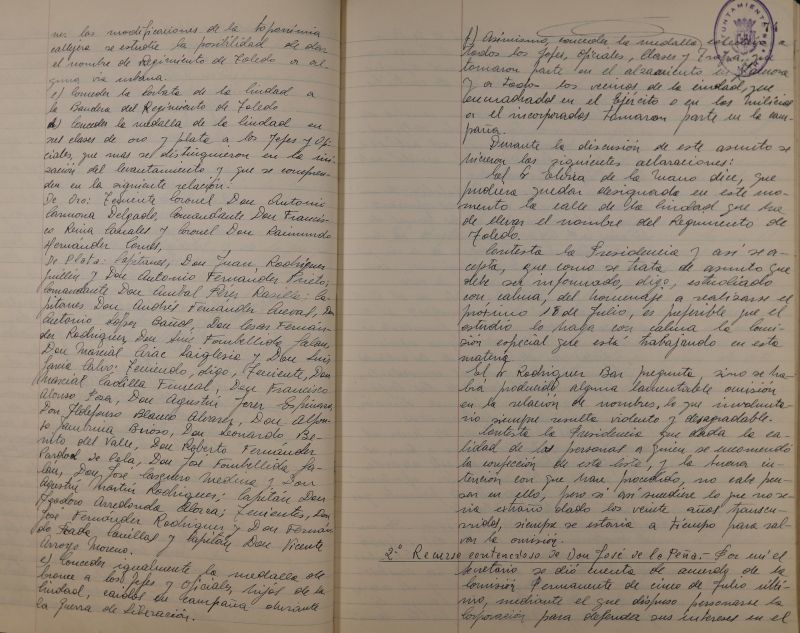 nes las modificaciones de la toponimia
callejera se estudie la posibilidad de dar
el nombre de Regimiento de Toledo a al-
guna vía urbana.
c) Conceder la Corbata de la Ciudad a
la Bandera del Regimiento de Toledo
d) Conceder la medalla de la Ciudad en
sus clases de oro y plata a los Jefes y Ofi-
ciales, que mas se distinguieron en la ini-
ciación del levantamiento y que se compren-
den en la siguiente relación:
De Oro: Teniente Coronel Don Antonio
Carmona Delgado, Comandante Don Francis-
co Reina Canales y Coronel Don Raimundo
Hernandez Comes,
De Plata: Capitanes, Don Juan Rodríguez
Guillén y Don Antonio Fernández Prieto,
Comandante Don Anibal Pérez Rasilla: Ca-
pitanes Don Andrés Fernandez Cuevas, Don
Antonio López Bañol, Don Cesar Fernán-
dez Rodríguez Don Luis Fombellida Galan,
Don Marcial Arac Langlesia y Don Luis
Calvo: Teniendo, digo, Teniente, Don
Marcial Cadilla Funcal, Don Francisco
Alonso Sosa, Don Agustín Jerez Espinazo,
Don Ildefonso Blanco Alvarez, Don Alfon-
so Brioso, Don Leonardo Be-
nito del Valle, Don Roberto Fernández
Pardod de Cela, Don José Fombellida Ga-
lán, Don José Casquero Medina y Don
Agustín Martín Rodriguez; Capitán Don
Teodoro Arredonda Lorca; Tenientes, Don
José Fernández Rodriguez y Don Fernan-
do Casillas y Capitán Don Vicente
Arroyo Moreno.
e) Conceder igualmente la medalla de
bronce a los Jefes y Oficiales, hijos de la
Ciudad, caídos en campaña durante
la Guerra de Liberación.
f) Asimismo, conceder la medalla a
todos los Jefes, Oficiales, Clases y Tropa que
tomaron parte en el alzamiento en Zamora
y a todos los vecinos de la ciudad, que
encuadrados en el Ejército o en las milicias
a el incorporados tomaron parte en la cam-
paña.
Durante la discusión de este asunto se
hicieron las siguientes aclaraciones:
El Sr Calvera de la Mano dice, que
pudiera quedar designada en este mo-
mento la calle de la Ciudad que ha
de llevar el nombre del Regimiento de
Toledo.
Contesta la Presidencia y así se a-
cepta, que como se trata de asunto que
debe ser informado, digo, estudiado
con calma, del homenaje a realizarse el
próximo 18 de Julio, es preferible que el
estudio lo haga con calma la Comi-
sión especial que está trabajando en esta
materia
El Sr Rodriguez Bar pregunta, sino se ha-
brá producido alguna lamentable omisión
en la relación de nombres, lo que involunta-
rio siempre resulta violento y desagradable.
Contesta la Presidencia que dada la ca-
lidad de las personas a quien se encomendó
la confección de esta lista, y la buena in-
tención con que han procedido, no cabe pen-
sar en ello, pero si así sucediere lo que no se-
ría extraño dado los veinte años transcu-
rridos, siempre se estaría a tiempo para sal-
var la omisión.
2º Recurso contencioso de Don José de la Peña.- Por mí el
Secretario se dió cuenta de acuerdo de la
Comisión Permanente de cinco de Julio últi-
mo, mediante el que dispuso personarse la
Corporación para defender sus intereses en el